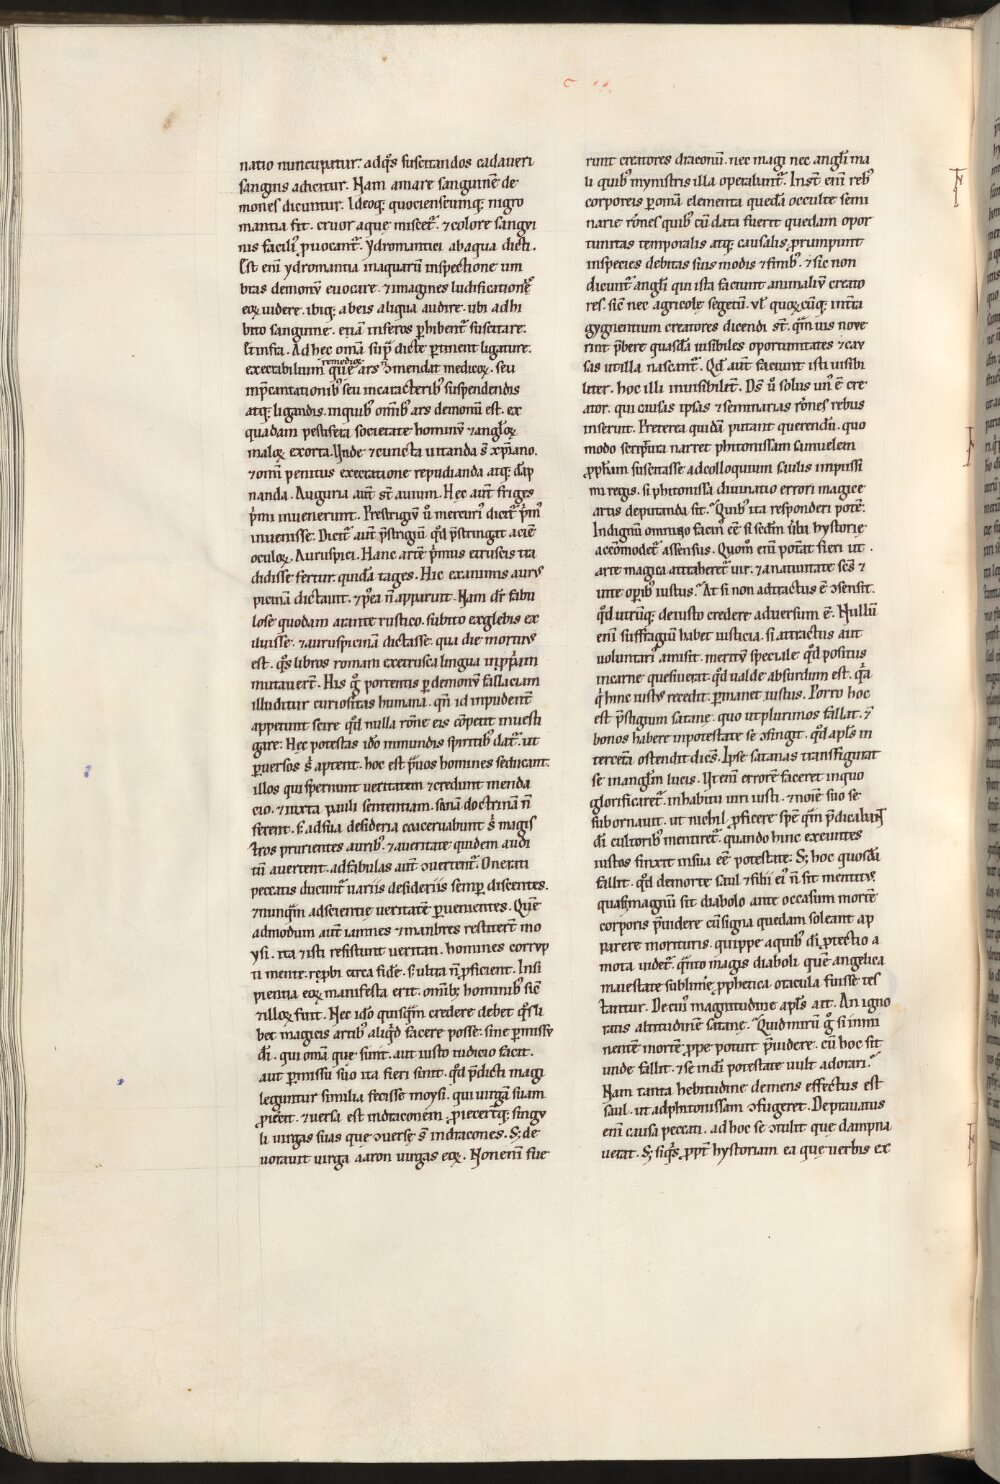 natio nuncupatur. adq̄s suscitandos cadaueri
sanguis adicitur. Nam amare sanguinē de
mones dicuntur. Ideoq; quociensumq; nigro
mantia fit. cruor aque miscet᷑. ⁊ colore sangui
nis facili᷒ ꝓuocant᷑. Ydromantici abaqua dicti.
Est eni ydromantia inaquarū inspectione um
bras demonū euocare. ⁊ imagines ludificationē
eoꝝ uidere. ibiq; abeis aliqua audire. ubi adhi
bito sanguine. etiā inferos ꝑhibent᷑ suscitare.
Et infra. Ad hec oma sup̄ dicte ꝑtinent ligature.
execrabilium remedioꝝ que ars ꝯmendat medicoꝝ. seu
inp̄cantationib᷒ seu incaracterib᷒ suspendendis
atq; ligandis. inquib᷒ omīb᷒ ars demonū est. ex
quadam pestifera societate hominū ⁊ angl̄oꝝ
maloꝝ exorta. Unde ⁊ cuncta uitanda s̄ xp̄iano.
⁊ omī penitus execratione repudianda atq; dāp
nanda. Auguria aut̄ st̄ auium. Hec aut̄ friges
p̄mi inuenerunt. Prestrigiū ū mercuri᷒ dicit᷑ p̄m᷒
inuenisse. Dicit᷑ aut̄ p̄strigiū qd̄ p̄stringat aciē
oculoꝝ. Auruspici. Hanc artē p̄mus etruscis tra
didisse fertur. quidā tages. Hic examinis auru
picinā dictauit. ⁊ p̄ea n̄ apparuit. Nam dr̄ fabu
lose quodam arante rustico. subito exglebis ex
iluisse. ⁊ auruspicinā dictasse. qua die mortuus
est. q̄s libros romani exetrusca lingua inp̄p̄am
mutauert̄. His ḡ portentis ꝑ demonū fallaciam
illuditur curiositas humana. qn̄ id inpudent̄
appetunt scire qd̄ nulla rōne eis cōpetit inuesti
gare. Hec potestas idō inmundis spiritib᷒ dat᷑. ut
ꝑuersos s̄ aptent. hoc est p̄uos homines seducant.
illos qui spernunt ueritatem ⁊ credunt menda
cio. ⁊ iuxta pauli sententiam. sanā doctrinā n̄
ferent. s; ad sua desideria coaceruabunt s̄ magis
tros prurientes aurib᷒. ⁊ aueritate quidem audi
tū auertent. ad fabulas aut̄ ꝯuertent᷑. Onerati
peccatis ducunt᷑ uariis desideriis semꝑ discentes.
⁊ nunq̄m ad scientie ueritatē ꝑuenientes. Quē
admodum aut̄ iamnes ⁊ mambres restitert̄ mo
ysi. ita ⁊ isti resistunt ueritati. homines corrup
ti mente. rep̄bi circa fidē. s; ultra n̄ ꝓficient. Insi
pientia eoꝝ manifesta erit. omīb; hominib᷒ sic̄
⁊ illoꝝ fuit. Nec idō quisq̄m credere debet q̄sli
bet magicis artib᷒ aliq̄d facere posse. sine ꝑmissu
dī. qui omā que fiunt. aut iusto iudicio facit.
aut ꝑmissu suo ita fieri sinit. qd̄ p̄dicti magi
leguntur similia fecisse moysi. qui uirgā suam
ꝓiecit. ⁊ uersa est indraconem. ꝓiecert̄q; singu
li uirgas suas que ꝯuerse s̄ indracones. S; de
uorauit uirga aaron uirgas eoꝝ. Non enī fue
runt creatores draconū. nec magi nec angl̄i ma
li quib᷒ mynistris illa operabant᷑. Inst̄ enī reb᷒
corporeis ꝑ omā elementa quedā occulte semi
narie rōnes quib᷒ cū data fuerit quedam opor
tunitas temporalis atq; causalis ꝓrumpunt
inspecies debitas suis modis ⁊ finib᷒. ⁊ sic non
dicunt᷑ angl̄i qui ista faciunt animaliū creato
res. sic̄ nec agricole segetū. ul̄ quoꝝcūq; int̄ra
gygnentium creatores dicendi st̄. q̄muis noue
rint p̄bere quasdā uisibiles oportunitates ⁊ cau
sas ut illa nascant᷑. Qd̄ aut̄ faciunt isti uisibi
liter. hoc illi inuisibilit̄. Ds̄ ū solus un᷒ ē cre
ator. qui causas ipsas ⁊ seminarias rōnes rebus
inseruit. Preterea quidā putant querendū. quo
modo scriptura narret phitonissam samuelem
ꝓph̄am suscitasse ad colloquium saulis impiissi
mi regis. si phitonissa diuinatio errori magice
artis deputanda sit. Quib᷒ ita responderi potē.
Indignū omnino facin᷒ ēē si sedm̄ ūba hystorie
accōmodet᷑ assensus. Quom̄ enī potat fieri ut.
arte magica attraheret᷑ uir. ⁊ anatiuitate scs̄ ⁊
uite opib᷒ iustus. At si non adtractus ē ꝯsensit.
qd̄ utrūq; de iusto credere aduersum ē. Nullū
enī suffragiū habet iusticia. si attractus aut
uoluntari᷒ amisit. meritū speciale qd̄ positus
incarne quesiuerat. qd̄ ualde absurdum est. q̄a
q̄ hinc iustus recedit. ꝑmanet iustus. Porro hoc
est p̄stigium satane. quo ut plurimos fallat. ⁊
bonos habere inpotestate se ꝯfingit. qd̄ apl̄s in
terceta ostendit dices̄. Ipse satanas transfigurat
se inangl̄m lucis. Ut enī errorē faceret inquo
glorificaret᷑. inhabitu uiri iusti. ⁊ noīe suo se
subornauit. ut nichil ꝓficere spē q̄m p̄dicabat᷑
dī cultorib᷒ mentiret᷑. quando hinc exeuntes
iustos finxit insua eē potestate. S; hoc quosdā
fallit. qd̄ demorte saul ⁊ filii ei᷒ n̄ sit mentitus
quasi magnū sit diabolo ante occasum mortē
corporis p̄uidere cū signa quedam soleant ap
parere morituris. quippe aquib᷒ dī ꝓtectio a
mota uidet᷑. q̄nto magis diaboli quē angelica
maiestate sublimē ꝓphetica oracula fuisse tes
tantur. De cui᷒ magnitudine apl̄s ait. An igno
ratis altitudinē satane. Quid mirū ḡ si immi
nentē mortē ꝓpe potuit p̄uidere. cū hoc sit
unde fallit. ⁊ se indī potestate uult adorari.
Nam tanta hebitudine demens effectus est
saul. ut adphitonissam ꝯfugeret. Deprauatus
enī causa peccati. ad hoc se ꝯtulit que dampna
uerat. S; siq̄s ꝓpt̄ hystoriam ea que uerbis ex